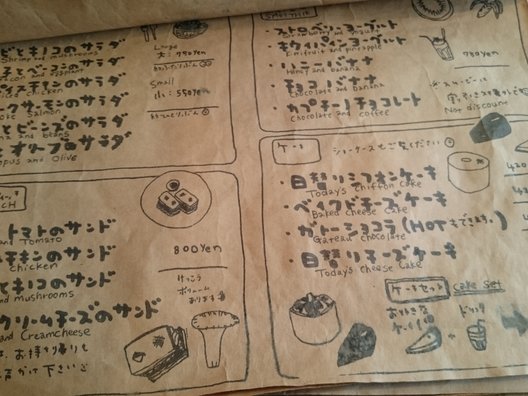 ビとキノコのサラダ
Shrimp and mushrooms
Large
大：980yen
eggplant
イスチキンのサラダ
chicken
Small
小：550yen
クサーモンのサラダ
Salmon
とビーンズのサラダ
beans
とオリーブのサラダ
and Olive
ストロベリーヨーグルト
Strawberry and yogurt
キウイパインヨーグルト
Kiwifruit and pineapple
ハニーバナナ
Honey and banana
チョコバナナ
Chocolate and banana
カプチーノチョコレート
Chocolate and coffee
Not discount
CH
トマトのサンド
and Tomato
チキンのサンド
chicken
とキノコのサンド
and mushrooms
クリームチーズのサンド
and Creamcheese
800yen
けっこう
ボリューム
あります
お持ち帰りも
下さい
ケーキ
ショーケースもご覧ください
日替りシフォンケーキ
Today's chiffon cake
ベイクドチーズケーキ
Baked cheese cake
ガトーショコラ(HOTもできます。)
Gateau chocolate
日替りチーズケーキ
Today's cheese cake
ケーキセット Cake set
お好きな
ケーキ1個 + ドリンク